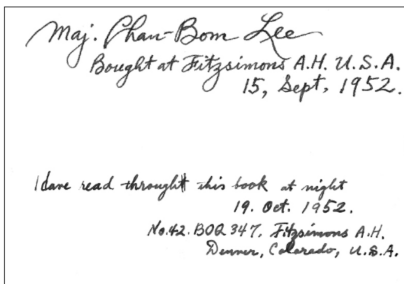 Maj. Chan-Bom Lee
Bought at Fitzsimons A.H. U.S.A.
15, Sept, 1952.
I dare read throught this book at night
19. Oct. 1952.
No.42. BOQ 347. Fitzsimons A.H.
Denver, Colorado, U.S.A.